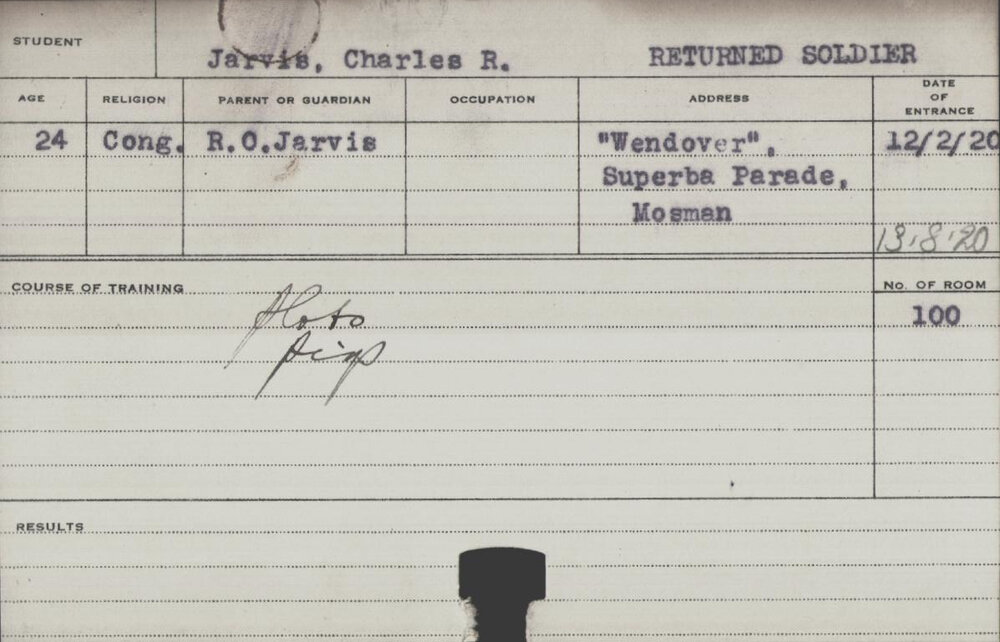 STUDENT
Jarvis, Charles R. RETURNED SOLDIER
AGE RELIGION PARENT OR GUARDIAN OCCUPATION ADDRESS DATE OF ENTRANCE
24 Cong. R.O.Jarvis "Wendover", 12/2/20
Superba Parade,
Mosman
13.8.20
COURSE OF TRAINING No. OF ROOM
100
RESULTS